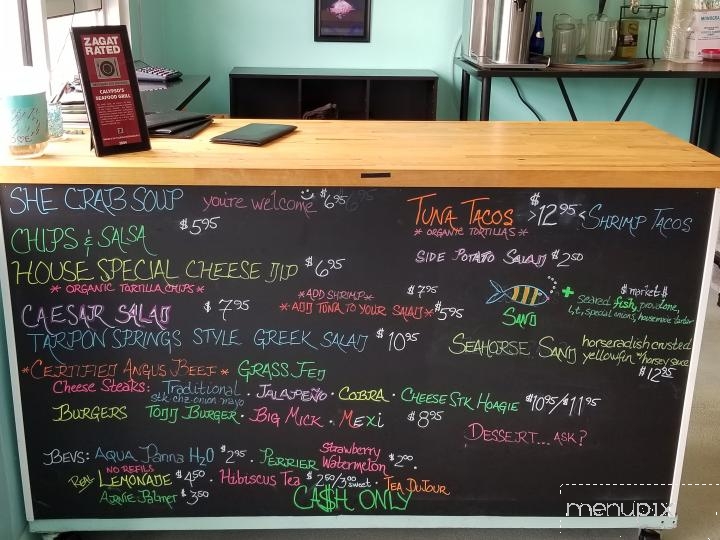 ZAGAT
RATED
CALYPSO'S
SEAFOOD GRILL
SHE CRAB SOUP you're welcome $6.95
CHIPS & SALSA $5.95
HOUSE SPECIAL CHEESE DIP $6.95
* ORGANIC TORTILLA CHIPS *
CAESAR SALAD $7.95
* ADD SHRIMP * $7.95
* ADD TUNA TO YOUR SALAD * $5.95
TARPON SPRINGS STYLE GREEK SALAD $10.95
* CERTIFIED ANGUS BEEF * GRASS FED
Cheese Steaks: Traditional · JALAPEÑO · COBRA · CHEESE STK HOAGIE $10.95/$11.95
stk·chz·onion·mayo
BURGERS TODD BURGER · BIG MICK · MEXI $8.95
TUNA TACOS >$12.95< SHRIMP TACOS
* ORGANIC TORTILLAS *
SIDE POTATO SALAD $2.50
+ $ market $
seared fish, provolone,
l, t, special onions, housemade tartar
SAND
SEAHORSE SAND horseradish crusted
yellowfin w/ horsey sauce
$12.95
DESSERT... ASK?
BEVS: AQUA PANNA H2O $2.95 · PERRIER Strawberry
Watermelon $2.00 ·
NO REFILLS
Real LEMONADE $4.50 · Hibiscus Tea $2.50/3.00 sweet · TEA DU JOUR
Arnie Palmer $3.50
CA$H ONLY
menupix